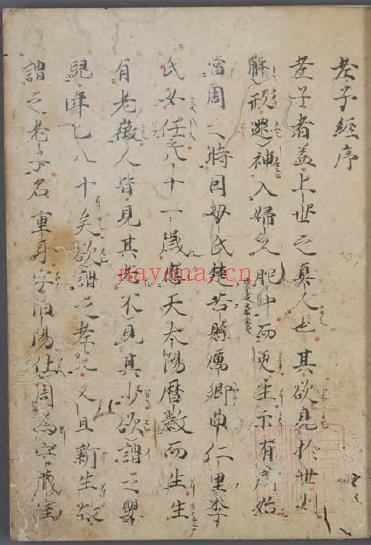 老子經序
老子者蓋上世之真人也其欲見於世則
解形遯神入婦人肥中而更生示有所始
當周之時因母氏楚苦縣厲卿曲仁里李
氏女任之八十一歲應天太陽曆數而生生
有老徵人皆見其老不見其少欲謂之嬰
兒年已八十矣欲謂之老父又且新生故
謂之老子名重耳字伯陽仕周為守藏室
nayona.cn